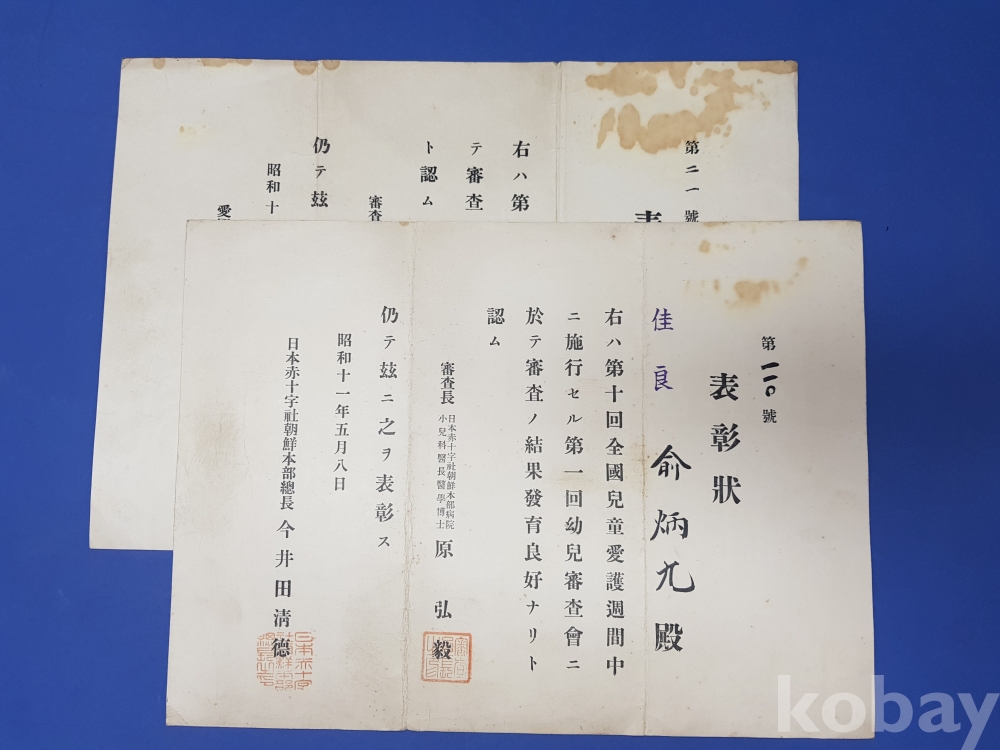 第二一號
表
右ハ第
テ審査
ト認ム
審査
仍テ玆
昭和十
愛
第一一〇號
表彰狀
佳良
俞炳九殿
右ハ第十回全國兒童愛護週間中
ニ施行セル第一回幼兒審查會ニ
於テ審査ノ結果發育良好ナリト
認ム
審査長 日本赤十字社朝鮮本部病院
小兒科醫長醫學博士 原弘毅
仍テ玆ニ之ヲ表彰ス
昭和十一年五月八日
日本赤十字社朝鮮本部總長 今井田淸德
kobay